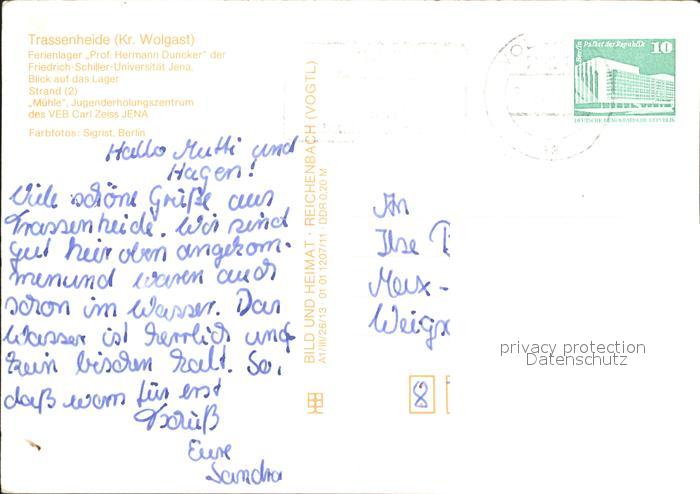 Trassenheide (Kr. Wolgast)
Ferienlager „Prof. Hermann Duncker" der
Friedrich-Schiller-Universität Jena,
Blick auf das Lager
Strand (2)
„Mühle", Jugenderholungszentrum
des VEB Carl Zeiss JENA
Farbfotos: Sigrist, Berlin
Hallo Mutti und
Hagen!
Viele schöne Grüße aus
Trassenheide. Wir sind
gut hier oben angekom-
menund waren auch
schon im Wasser. Das
Wasser ist herrlich und
kein bischen kalt. So,
daß wars für erst
Tschüß
Eure
Sandra
BILD UND HEIMAT · REICHENBACH (VOGTL)
A1/III/26/13 01 01 1207/11 DDR 0,20 M
Berlin Palast der Republik 10
DEUTSCHE DEMOKRATISCHE REPUBLIK
An
Ilse
Max-
8
privacy protection
Datenschutz